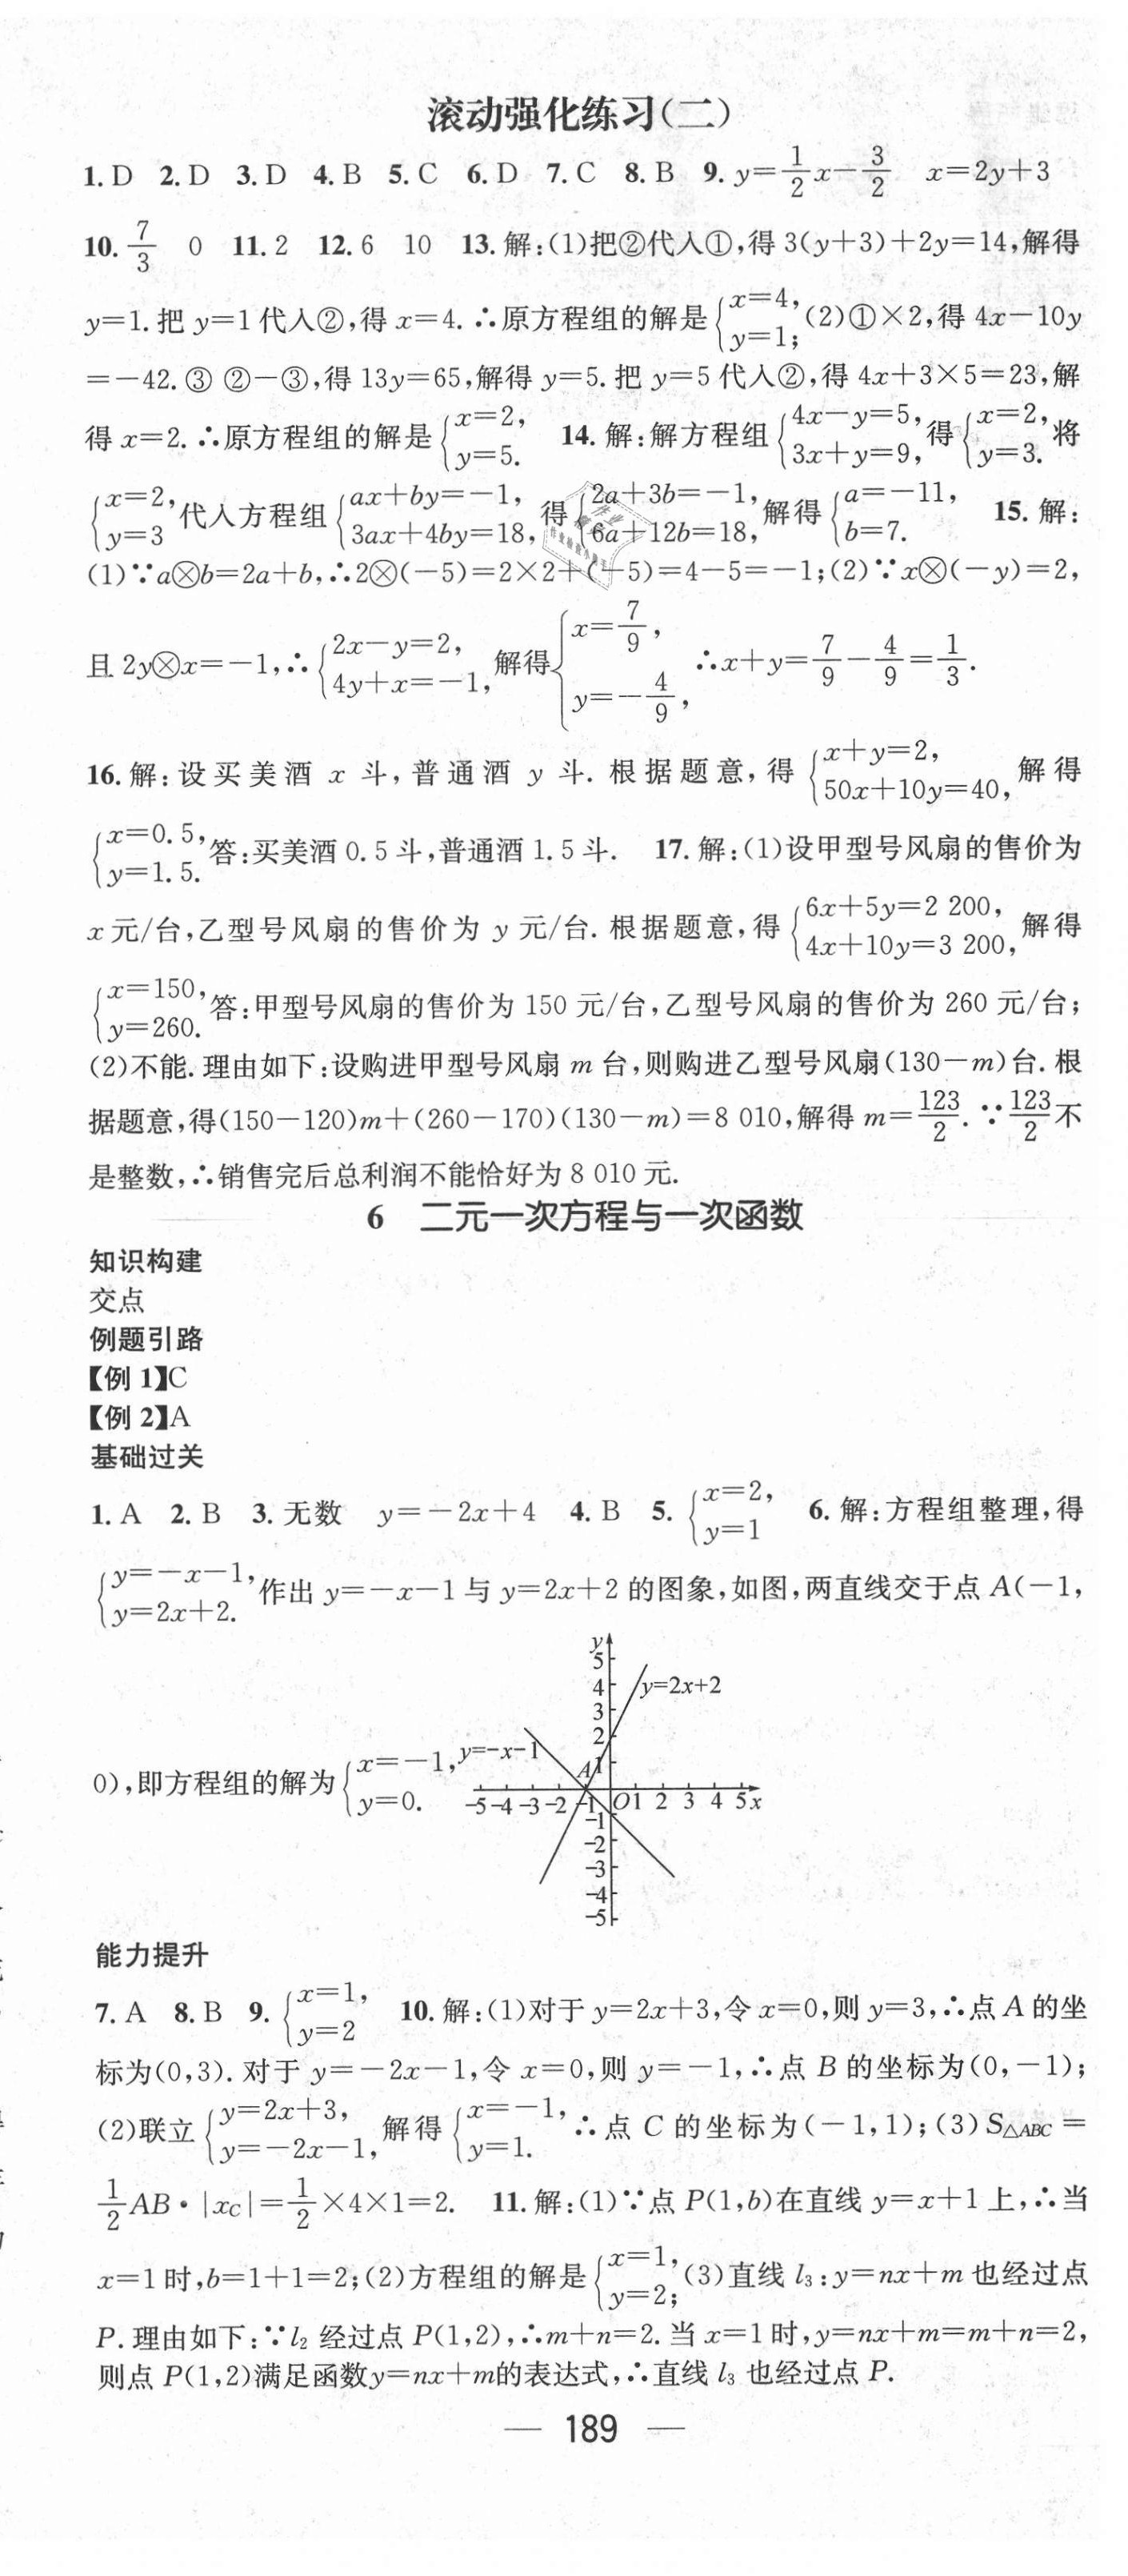 滚动强化练习(二)
1. D 2. D 3. D 4. B 5. C 6. D 7. C 8. B 9. y=1/2x-3/2 x=2y+3
10. 7/3 0 11. 2 12. 6 10 13. 解:(1)把②代入①,得 3(y+3)+2y=14,解得
y=1. 把 y=1 代入②,得 x=4. ∴原方程组的解是{x=4, y=1; (2)①×2,得 4x-10y
=-42. ③ ②-③,得 13y=65,解得 y=5. 把 y=5 代入②,得 4x+3×5=23,解
得 x=2. ∴原方程组的解是{x=2, y=5. 14. 解:解方程组{4x-y=5, 3x+y=9,得{x=2, y=3. 将
{x=2, y=3 代入方程组{ax+by=-1, 3ax+4by=18,得{2a+3b=-1, 6a+12b=18,解得{a=-11, b=7. 15. 解:
(1)∵a⊗b=2a+b,∴2⊗(-5)=2×2+(-5)=4-5=-1;(2)∵x⊗(-y)=2,
且 2y⊗x=-1,∴{2x-y=2, 4y+x=-1,解得{x=7/9, y=-4/9, ∴x+y=7/9-4/9=1/3.
16. 解:设买美酒 x 斗,普通酒 y 斗. 根据题意,得{x+y=2, 50x+10y=40,解得
{x=0.5, y=1.5. 答:买美酒 0.5 斗,普通酒 1.5 斗. 17. 解:(1)设甲型号风扇的售价为
x 元/台,乙型号风扇的售价为 y 元/台. 根据题意,得{6x+5y=2 200, 4x+10y=3 200,解得
{x=150, y=260. 答:甲型号风扇的售价为 150 元/台,乙型号风扇的售价为 260 元/台;
(2)不能. 理由如下:设购进甲型号风扇 m 台,则购进乙型号风扇(130-m)台. 根
据题意,得(150-120)m+(260-170)(130-m)=8 010,解得 m=123/2. ∵123/2不
是整数,∴销售完后总利润不能恰好为 8 010 元.
6 二元一次方程与一次函数
知识构建
交点
例题引路
【例 1】C
【例 2】A
基础过关
1. A 2. B 3. 无数 y=-2x+4 4. B 5. {x=2, y=1 6. 解:方程组整理,得
{y=-x-1, y=2x+2. 作出 y=-x-1 与 y=2x+2 的图象,如图,两直线交于点 A(-1,
0),即方程组的解为{x=-1, y=0.
y
5
4
3
2
1
y=2x+2
y=-x-1
A
-5 -4 -3 -2 -1 O 1 2 3 4 5 x
-1
-2
-3
-4
-5
能力提升
7. A 8. B 9. {x=1, y=2 10. 解:(1)对于 y=2x+3,令 x=0,则 y=3,∴点 A 的坐
标为(0,3). 对于 y=-2x-1,令 x=0,则 y=-1,∴点 B 的坐标为(0,-1);
(2)联立{y=2x+3, y=-2x-1,解得{x=-1, y=1. ∴点 C 的坐标为(-1,1);(3)S△ABC=
1/2AB·|xC|=1/2×4×1=2. 11. 解:(1)∵点 P(1,b)在直线 y=x+1 上,∴当
x=1 时,b=1+1=2;(2)方程组的解是{x=1, y=2; (3)直线 l3:y=nx+m 也经过点
P. 理由如下:∵l2 经过点 P(1,2),∴m+n=2. 当 x=1 时,y=nx+m=m+n=2,
则点 P(1,2)满足函数y=nx+m的表达式,∴直线 l3 也经过点 P.
— 189 —